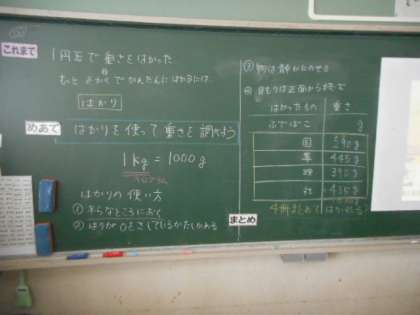 これまで
1円玉で重さをはかった
もっと よくかんたんにはかるには
はかり
めあて
はかりを使って重さを調べよう
1kg = 1000g
はかりの使い方
① 平らなところにおく
② はりが0をさしているかたしかめる
③ 物は静かにのせる
④ 目もりは正面から読む
はかったもの 重さ
ふでばこ g
国
算 445g
理 390g
社 435g
まとめ
4冊まとめて